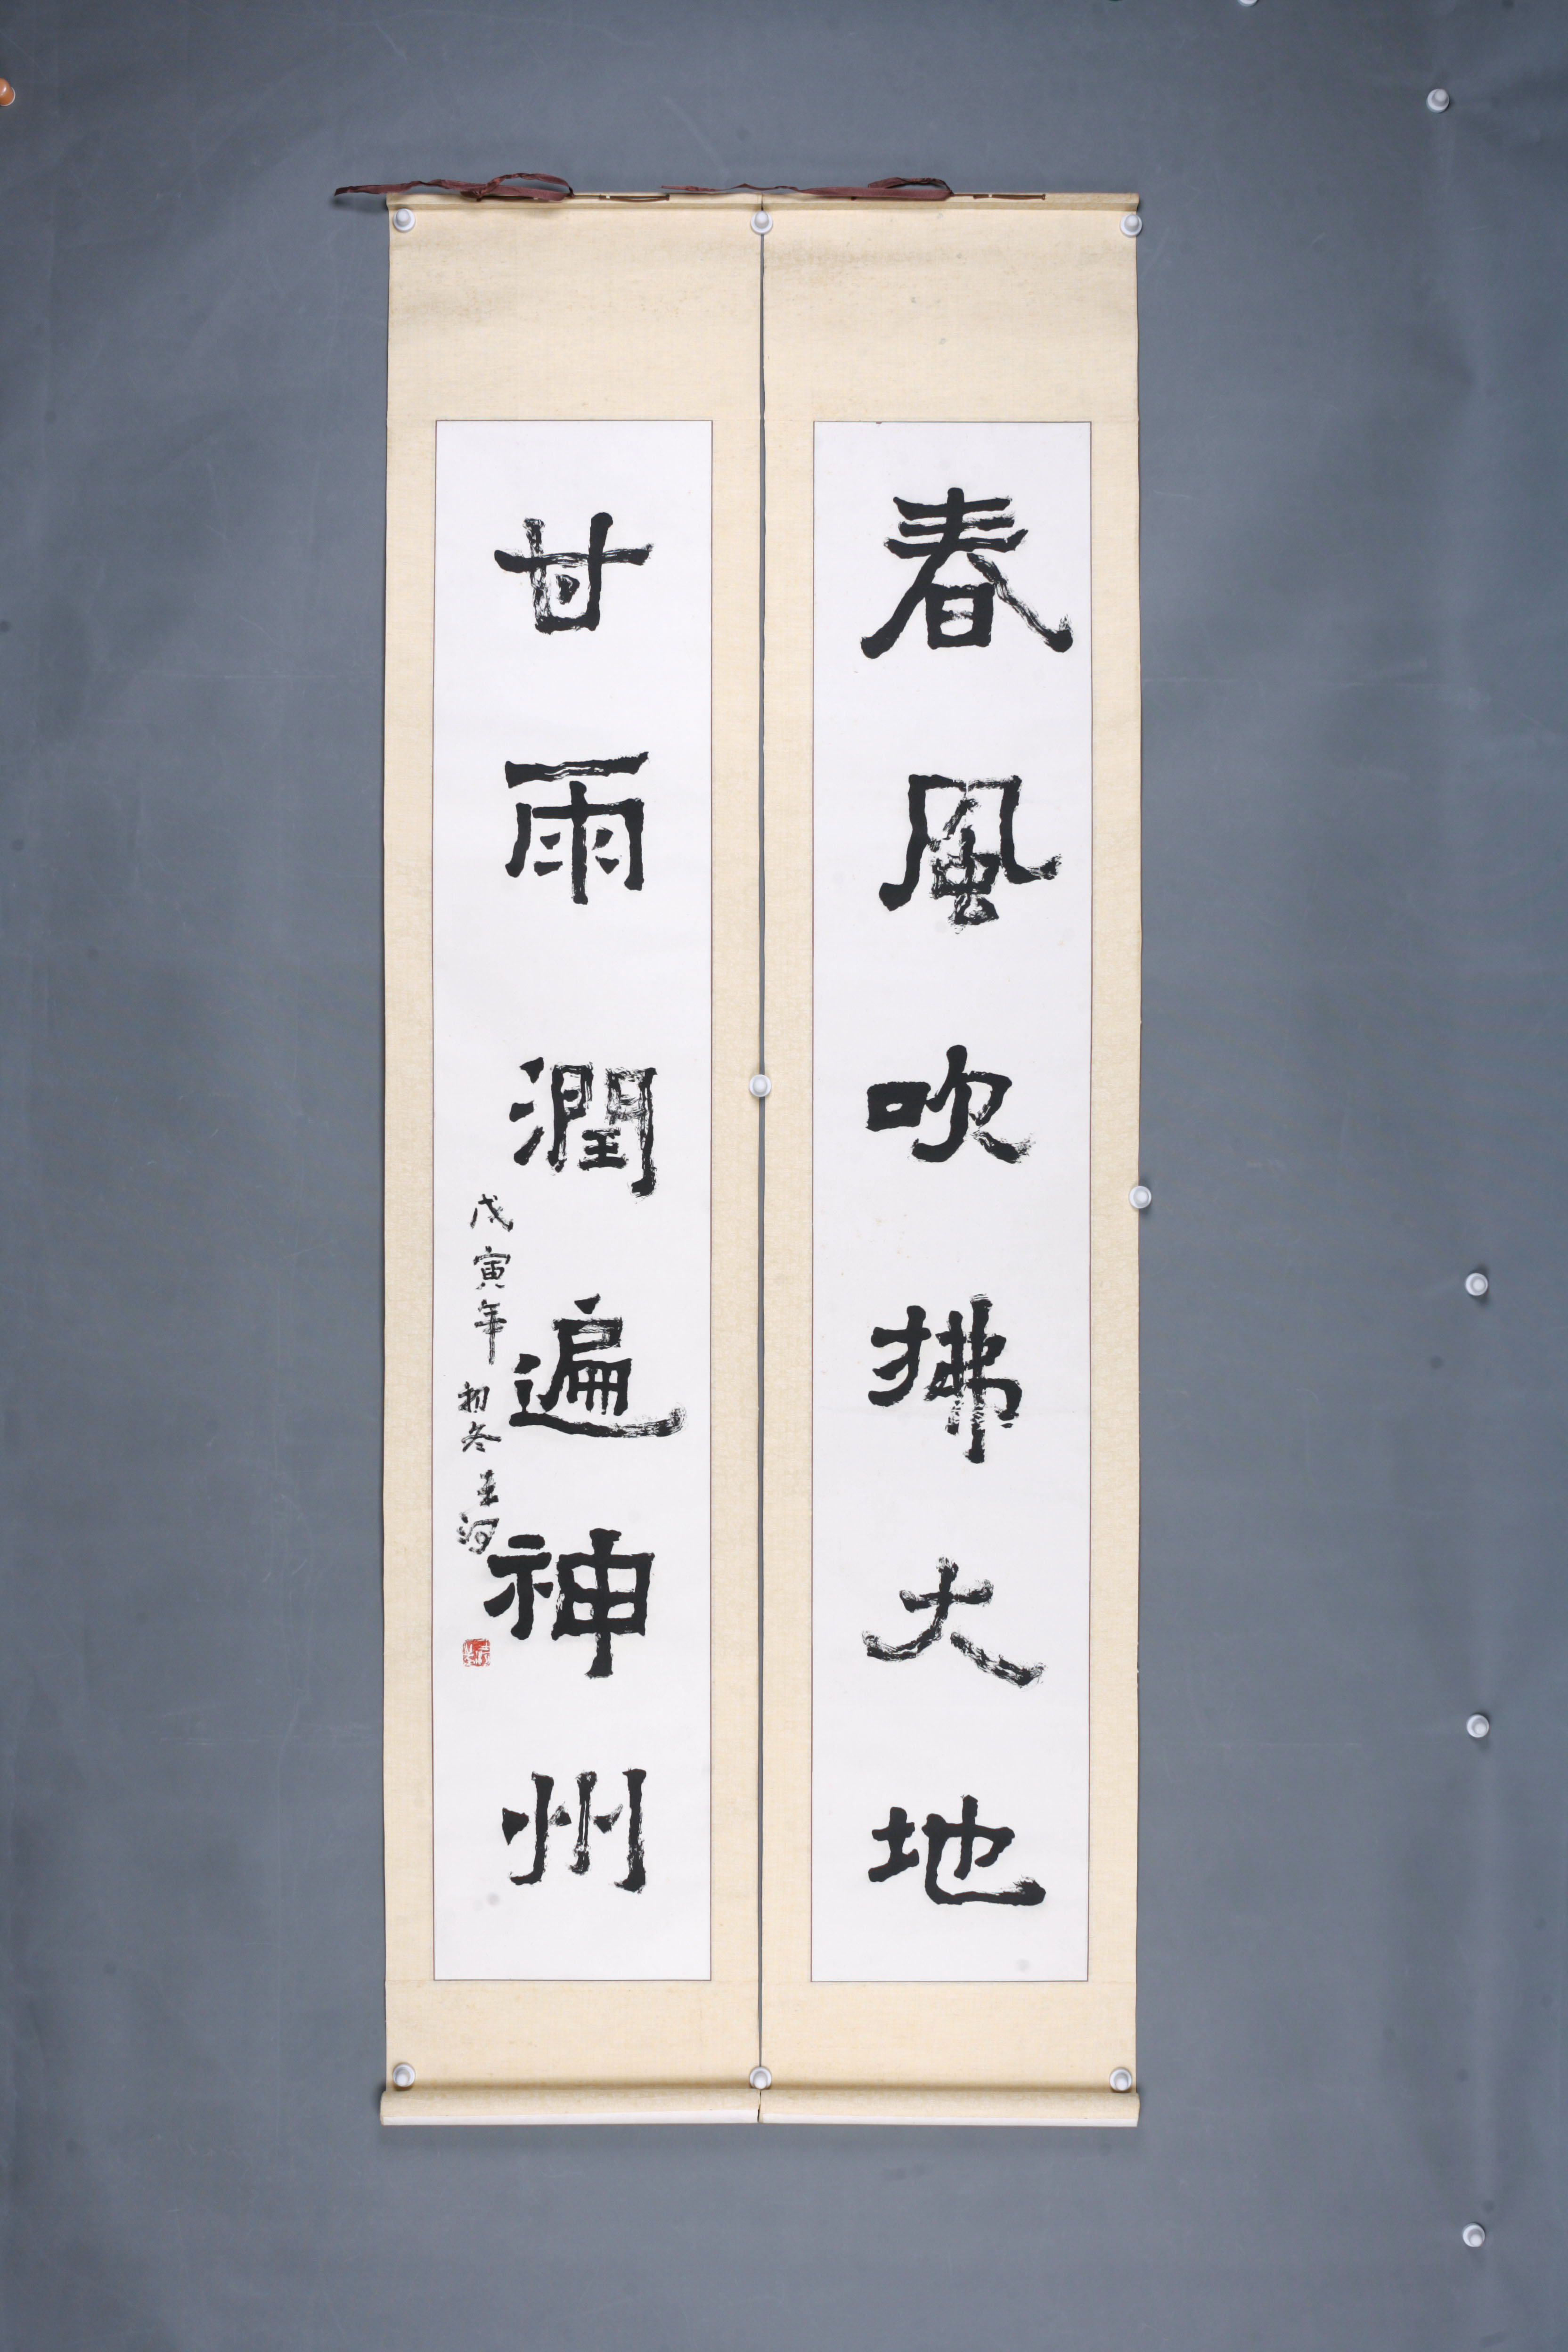 春風吹拂大地
甘雨潤遍神州
戊寅年初冬王河